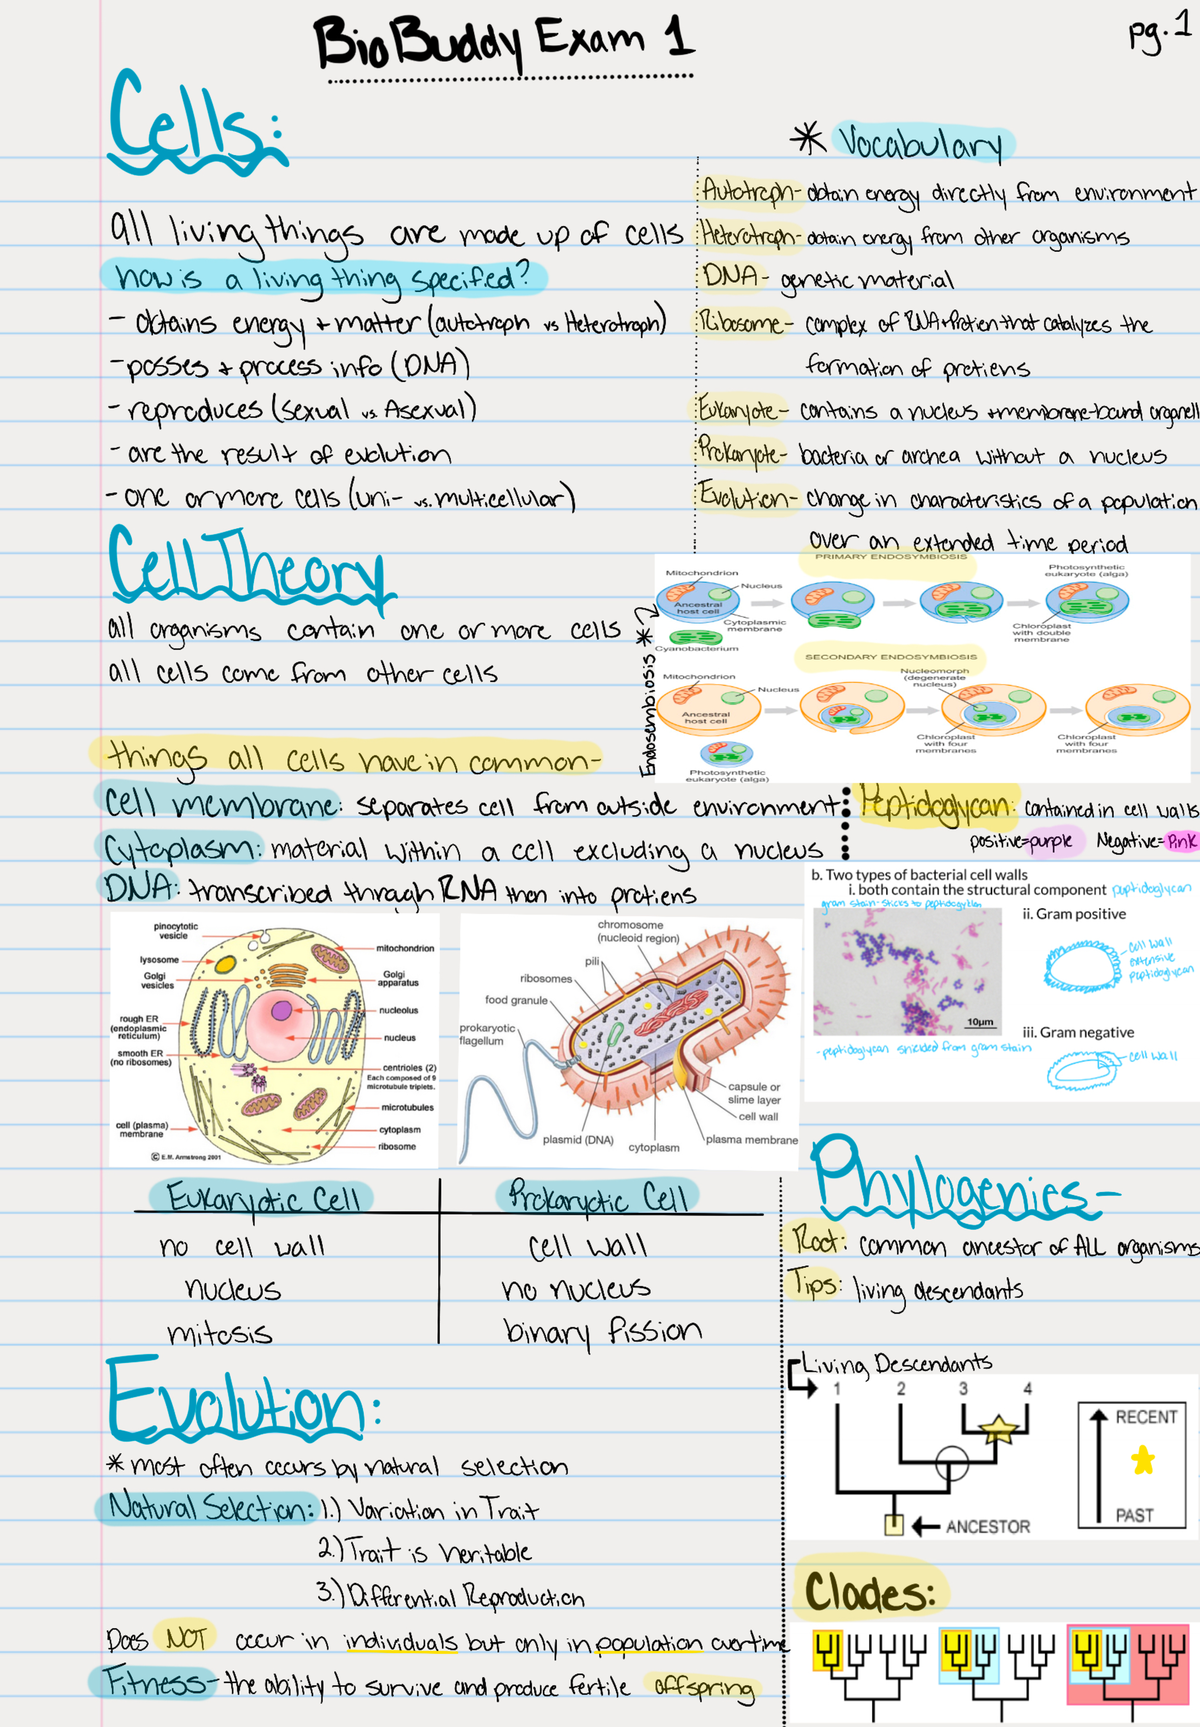 BioBuddy Exam 1
pg. 1
Cells:
all living things are made up of cells
how is a living thing specified?
- obtains energy + matter (autotroph vs Heterotroph)
- posses + process info (DNA)
- reproduces (sexual vs. Asexual)
- are the result of evolution
- one or more cells (uni- vs. multicellular)
* Vocabulary
Autotroph- obtain energy directly from environment
Heterotroph- obtain energy from other organisms
DNA- genetic material
Ribosome- complex of RNA+Protien that catalyzes the
formation of protiens
Eukaryote- contains a nucleus + membrane-bound organell
Prokaryote- bacteria or archea without a nucleus
Evolution- change in characteristics of a population
over an extended time period
Cell Theory
all organisms contain one or more cells
all cells come from other cells
Endosembiosis *
PRIMARY ENDOSYMBIOSIS
Mitochondrion
Nucleus
Ancestral
host cell
Cytoplasmic
membrane
Cyanobacterium
Photosynthetic
eukaryote (alga)
Chloroplast
with double
membrane
SECONDARY ENDOSYMBIOSIS
Mitochondrion
Nucleus
Ancestral
host cell
Photosynthetic
eukaryote (alga)
Nucleomorph
(degenerate
nucleus)
Chloroplast
with four
membranes
Chloroplast
with four
membranes
things all cells have in common-
Cell membrane: separates cell from outside environment
Cytoplasm: material within a cell excluding a nucleus
DNA: transcribed through RNA then into protiens
Peptidoglycan: contained in cell walls
positive=purple Negative=Pink
b. Two types of bacterial cell walls
i. both contain the structural component peptidoglycan
gram stain-sticks to peptidogyclan
ii. Gram positive
- cell wall
extensive
peptidoglycan
10µm
iii. Gram negative
- peptidoglycan shielded from gram stain
- cell wall
pinocytotic
vesicle
lysosome
Golgi
vesicles
rough ER
(endoplasmic
reticulum)
smooth ER
(no ribosomes)
cell (plasma)
membrane
© E.M. Armstrong 2001
mitochondrion
Golgi
apparatus
nucleolus
nucleus
centrioles (2)
Each composed of 9
microtubule triplets.
microtubules
cytoplasm
ribosome
chromosome
(nucleoid region)
pili
ribosomes
food granule
prokaryotic
flagellum
plasmid (DNA)
cytoplasm
capsule or
slime layer
cell wall
plasma membrane
Eukaryotic Cell
Prokaryotic Cell
no cell wall
cell wall
nucleus
no nucleus
mitosis
binary fission
Phylogenies-
Root: common ancestor of ALL organisms
Tips: living descendants
Living Descendants
1 2 3 4
RECENT
PAST
ANCESTOR
Clades:
Evolution:
* most often occurs by natural selection
Natural Selection: 1.) Variation in Trait
2.) Trait is heritable
3.) Differential Reproduction
Does NOT occur in individuals but only in population overtime
Fitness- the ability to survive and produce fertile offspring